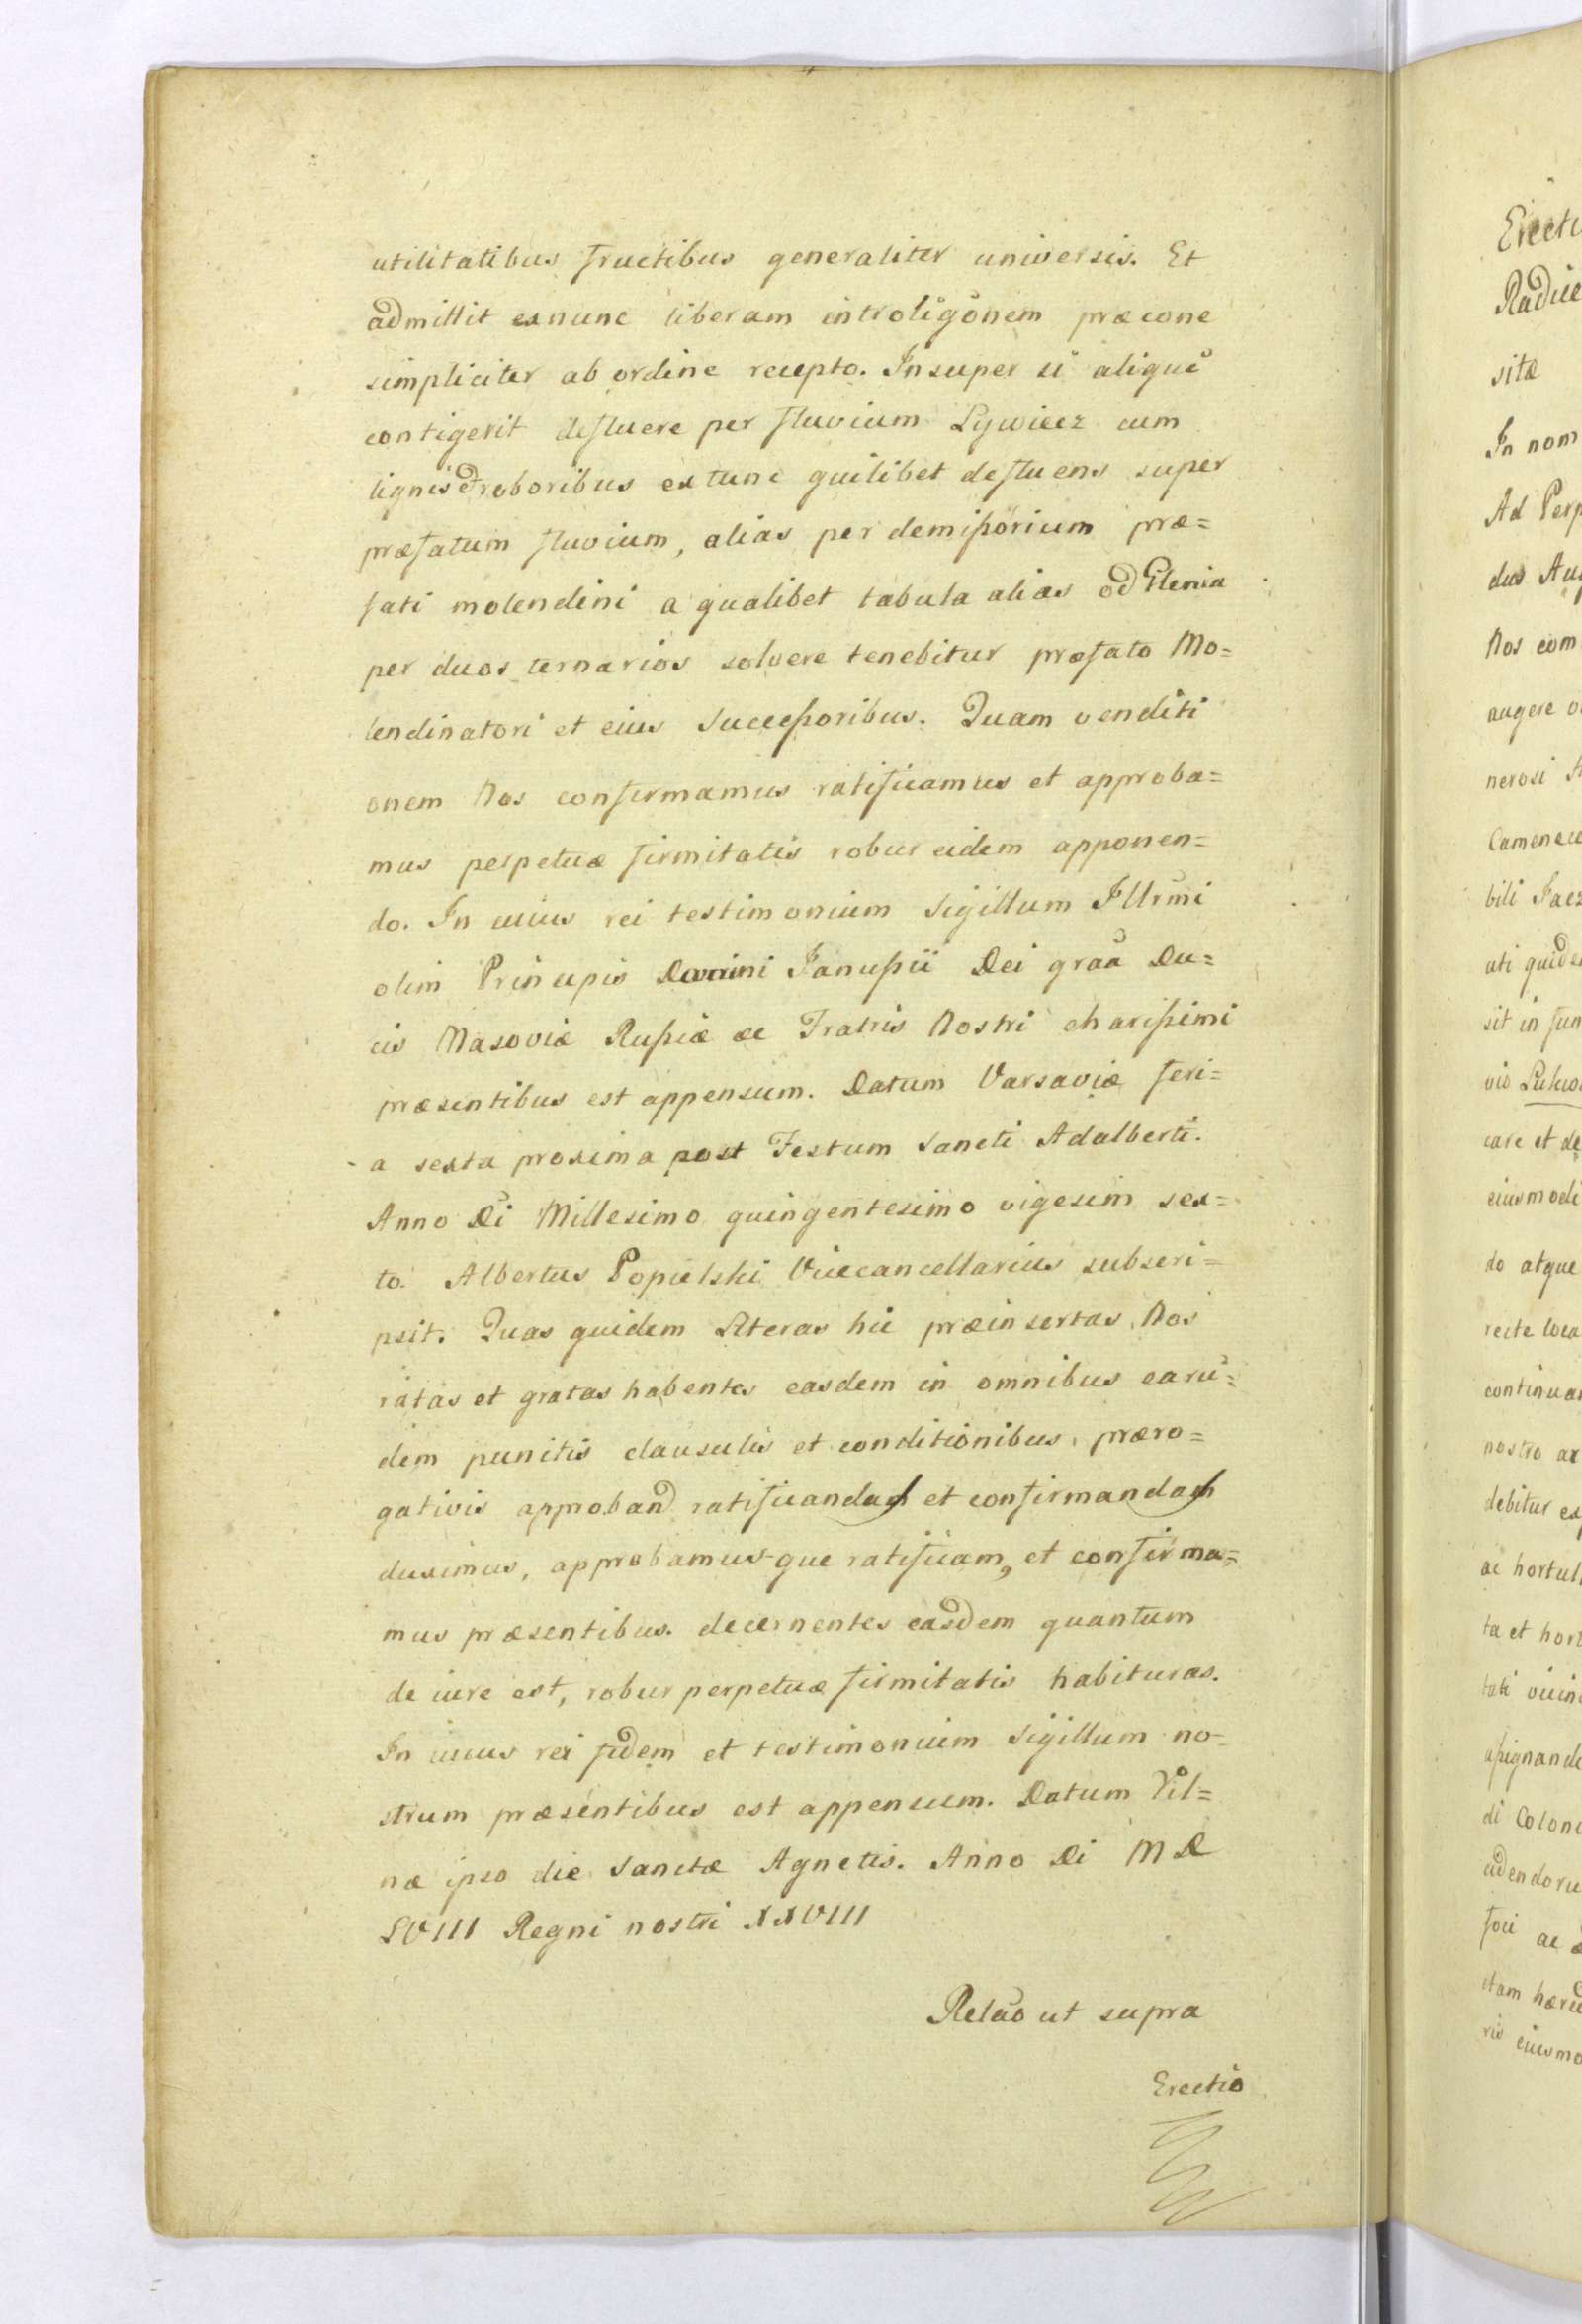 utilitatibus fructibus generaliter universis. Et
admittit exnunc liberam introligőnem præcone
simpliciter ab ordine recepto. Insuper si aliquē
contigerit defluere per fluvium Lywiecz cum
lignis et roboribus ex tunc quilibet defluens super
præfatum fluvium, alias per demißorium præ=
fati molendini a qualibet tabula alias od
per duos ternarios solvere tenebitur præfato Mo=
lendinatori et eius Succeßoribus. Quam venditi
onem Nos confirmamus ratificamus et approba=
mus perpetuæ firmitatis robur eidem apponen=
do. In cuius rei testimonium Sigillum Illrm̄i
olim Principis Domini Janußii Dei graã Du=
cis Masoviæ Rußiæ ac Fratris Nostri charißimi
præsentibus est appensum. Datum Varsaviæ feri=
a sexta proxima post Festum Sancti Adalberti.
Anno Dī Millesimo quingentesimo vigesim sex=
to. Albertus Popielski Vicecancellarius subscri=
psit. Quas quidem Literas hic præinsertas, Nos
ratas et gratas habentes easdem in omnibus earū=
dem punctis clausulis et conditionibus, præro=
gativis approband ratificandas et confirmandas
duximus, approbamus que ratificam, et confirma=
mus præsentibus. decernentes easdem quantum
de iure est, robur perpetuæ firmitatis habituras.
In cuius rei fidem et testimonium Sigillum no=
strum præsentibus est appensum. Datum Vil=
næ ipso die Sanctæ Agnetis. Anno Di M D
LVIII Regni nostri XXVIII
Relaõ ut supra
Erectio
Erecti
Radice
sitæ
In nom
Ad Perp
dus Aug
Nos com
augere
nerosi
Camenec
bili Jaez
uti quide
sit in fun
vis
care et de
eiusmodi
do atque
recte loca
continua
nostro
debitur ex
ac hortul
ta et hort
tati vicin
aßignand
di Colon
foci ac
etam
ris eiusmo